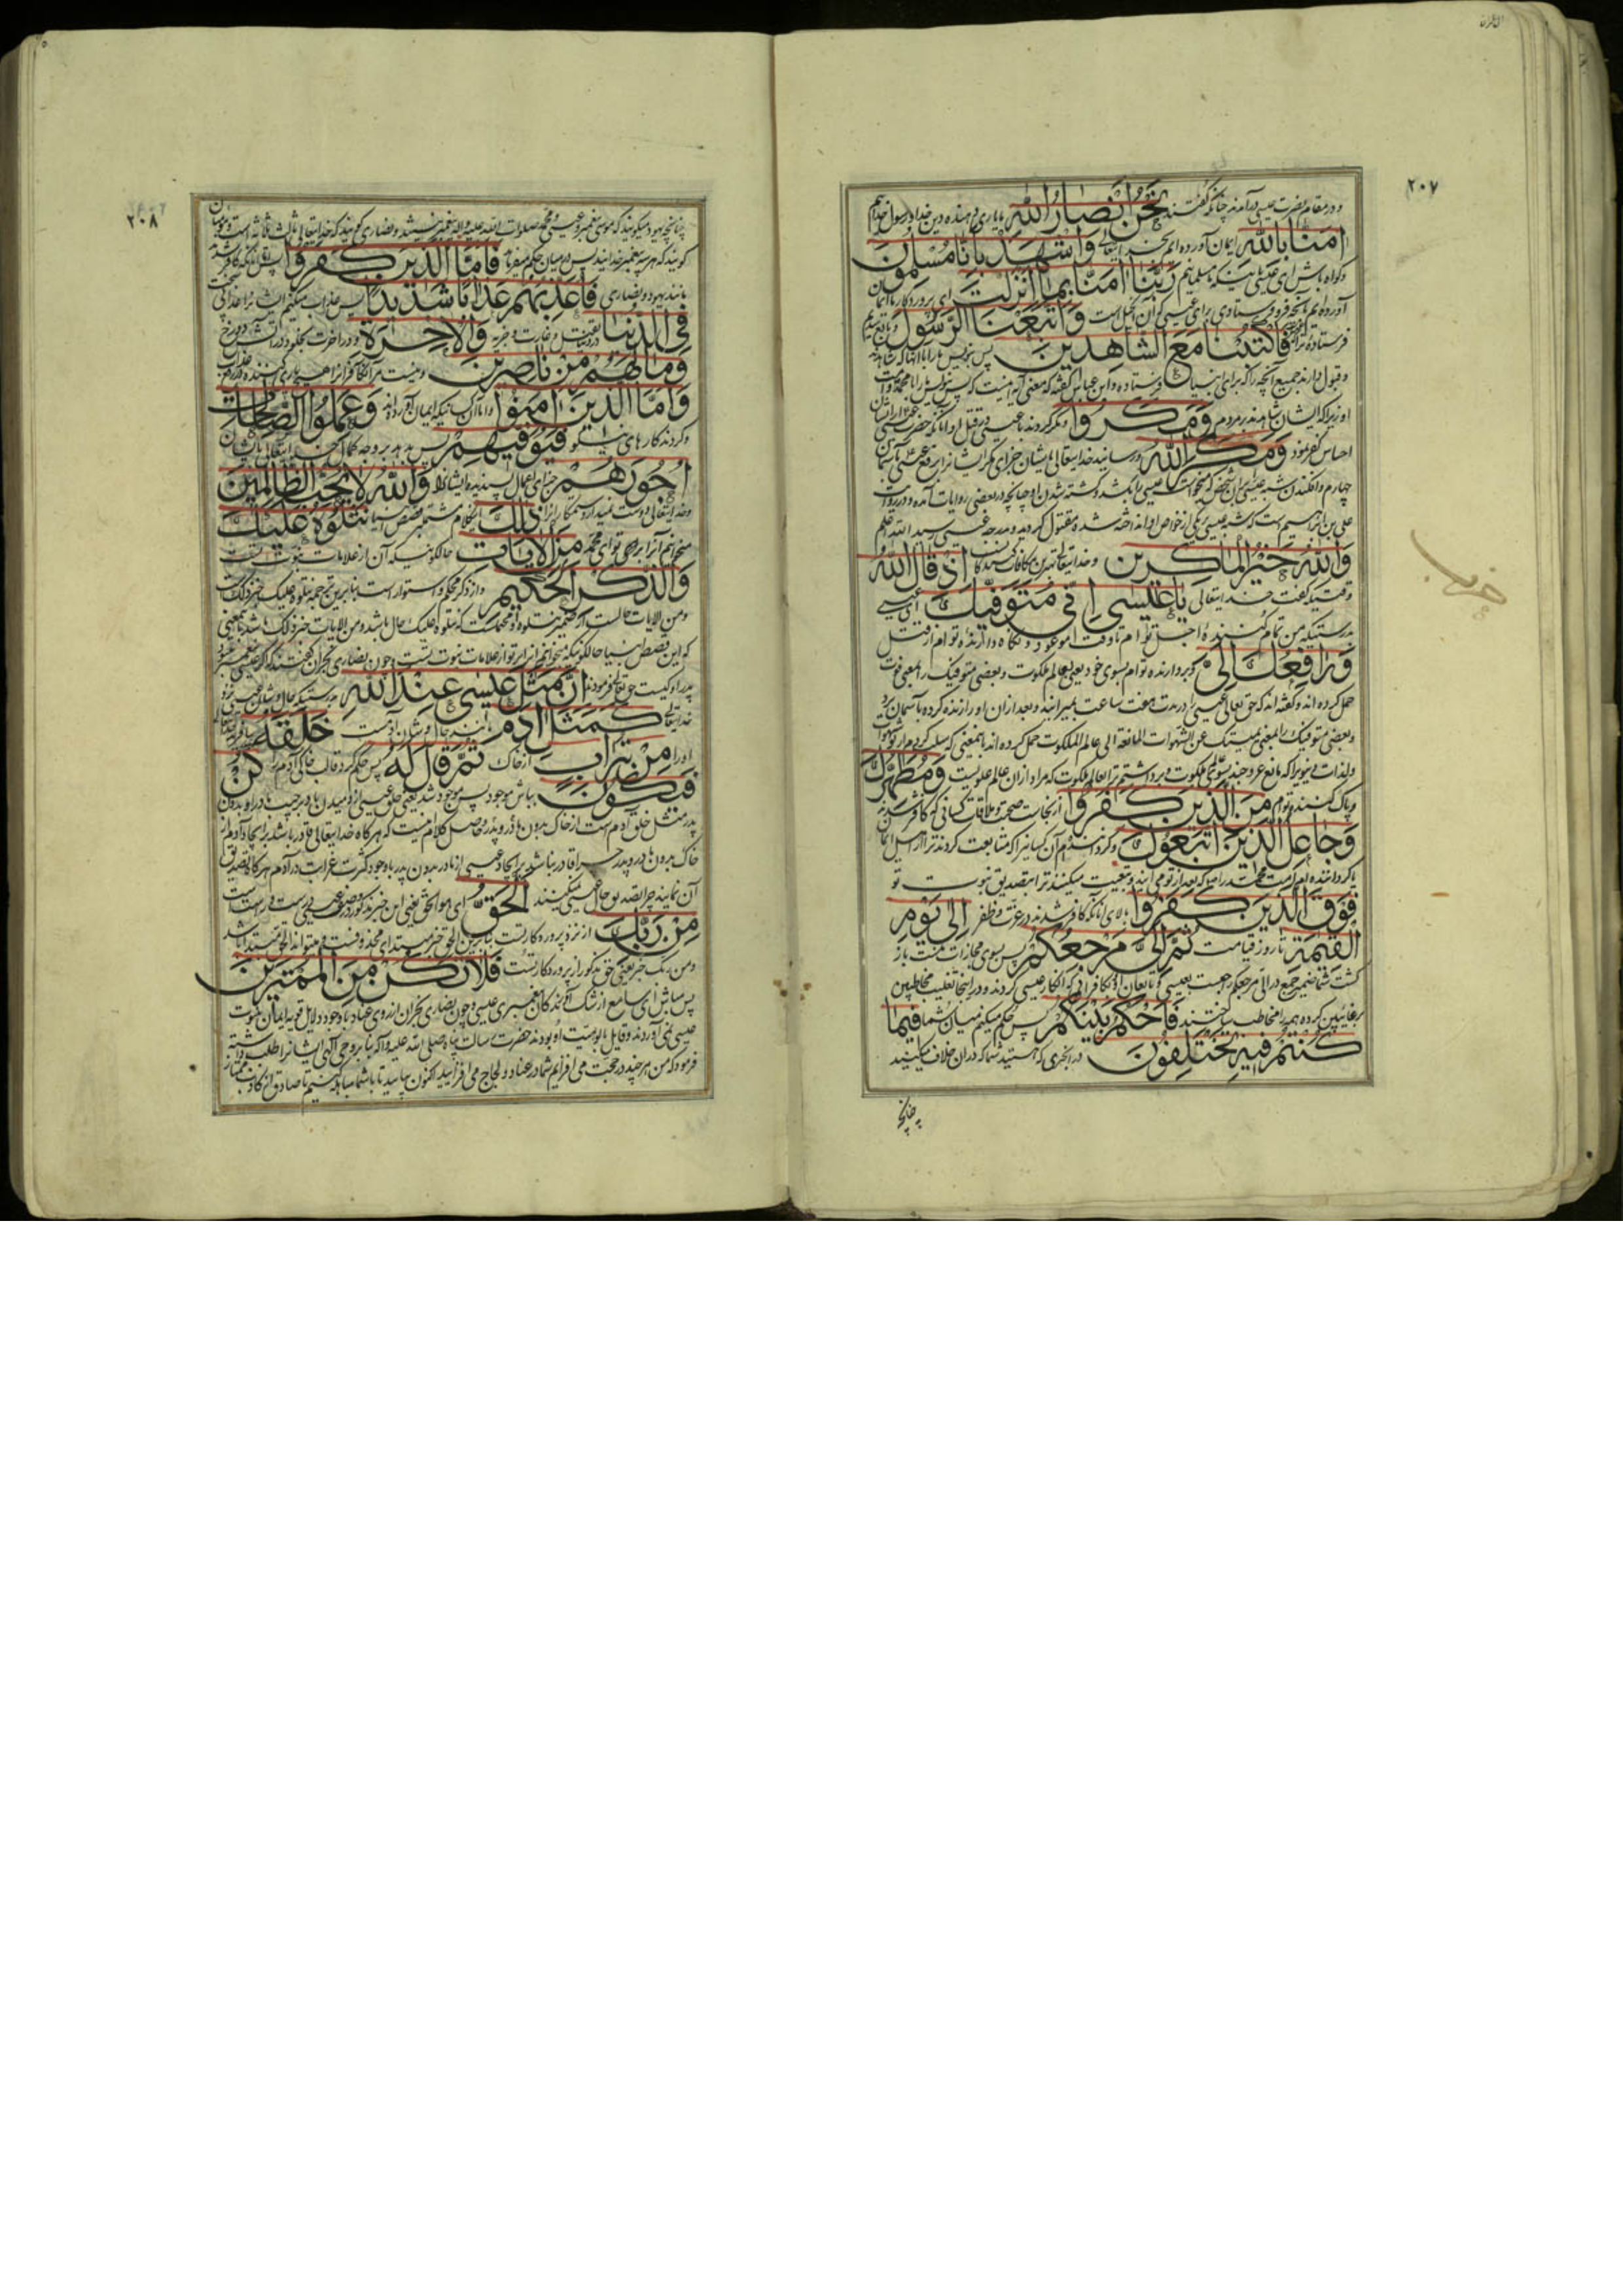 ال عمران
۲۰۷
و در مقام نصرت عیسی درآمدند چنانکه گفتند نَحْنُ اَنْصَارُ اللّٰهِ یاری دهنده دین خدا و رسول خدائیم
اٰمَنَّا بِاللّٰهِ ایمان آورده‌ایم بخدایتعالی وَاشْهَدْ بِاَنَّا مُسْلِمُونَ
و گواه باش ای عیسی باینکه ما مسلمانیم رَبَّنَا اٰمَنَّا بِمَا اَنْزَلْتَ ای پروردگار ما ایمان
آورده‌ایم بآنچه فرو فرستادی برای عیسی که آن انجیل است وَاتَّبَعْنَا الرَّسُولَ
فرستاده ترا فَاكْتُبْنَا مَعَ الشَّاهِدِينَ پس بنویس ما را با آنها که شاهدند
و قبول دارند جمیع آنچه را که برای انبیا فرستاده و ابن عباس گفته که معنی آیه اینست که پس بنویس ما را با محمد و امت
او زیرا که ایشان شاهدند بر مردم وَمَكَرُوا و مکر کردند با عیسی در قتل او آنانکه حضرت عیسی از ایشان
احساس کفر نمود وَمَكَرَ اللّٰهُ و رسانید خدایتعالی بایشان جزای مکر ایشانرا برفع عیسی باسمان
چهارم و افکندن شبه عیسی بر آن شخص که میخواست عیسی را بکشد و کشته شدن او چنانچه در بعضی روایات آمده و در روایت
علی بن ابراهیم است که شبه عیسی بر یکی از خواص او انداخته شده مقتول گردید و بدرجه عیسی رسید اللّٰه اعلم
وَاللّٰهُ خَيْرُ الْمَاكِرِينَ و خدایتعالی بهترین مکافات کنندگانست اِذْ قَالَ اللّٰهُ
وقتیکه گفت خدایتعالی يَا عِيسَى اِنِّي مُتَوَفِّيكَ ای عیسی
بدرستیکه من تمام کننده اجل توام تا وقت موعود و نگاه دارنده توام از قتل
وَرَافِعُكَ اِلَيَّ و بردارنده توام بسوی خود یعنی بعالم ملکوت و بعضی متوفیک را بمعنی فوت
حمل کرده‌اند و گفته‌اند که حق تعالی عیسی را در مدت هفت ساعت بمیرانید و بعد از آن او را زنده کرده بآسمان برد
و بعضی متوفیک را بمعنی ممیتک عن الشهوات المانعة الی عالم الملکوت حمل کرده‌اند بمعنی که سلب کردم از تو شهوات
و لذات دنیویرا که مانع عروجند بسوی عالم ملکوت و برداشتم ترا بعالم ملکوت که مراد از آن عالم علویست وَمُطَهِّرُكَ
و پاک کننده توام مِنَ الَّذِينَ كَفَرُوا از نجاست صحبت و ملاقات کسانی که کافر شدند
وَجَاعِلُ الَّذِينَ اتَّبَعُوكَ و گرداننده‌ام آن کسانیرا که متابعت کردند ترا از بنی اسرائیل
یا گرداننده‌ام امت محمد را که بعد از تو می‌آیند و تبعیت میکنند ترا بتصدیق نبوت تو
فَوْقَ الَّذِينَ كَفَرُوا بالای آنانکه کافر شدند در عزت و ظفر اِلٰى يَوْمِ
الْقِيٰمَةِ تا روز قیامت ثُمَّ اِلَيَّ مَرْجِعُكُمْ پس بسوی مجازات منست باز
گشت شما ضمیر جمع در الی مرجعکم راجعست بعیسی و تابعان او و کافرانی که انکار عیسی کردند و در اینجا تغلیب مخاطبین
بر غائبین کرده همه را مخاطب ساختند فَاَحْكُمُ بَيْنَكُمْ پس حکم میکنم میان شما فِيمَا
كُنْتُمْ فِيهِ تَخْتَلِفُونَ در آنچیزی که هستید شما که در آن خلاف میکنید
چنانچه
۲۰۸
چنانچه یهود میگویند که موسی پیغمبر و عیسی و محمد صلوات الله علیه و اله پیغمبر نیستند و نصاری گویند که خدایتعالی ثالث ثلاثه است و مؤمنان
گویند که هر سه پیغمبر خدایند پس در میان حکم میفرماید فَاَمَّا الَّذِينَ كَفَرُوا پس اما آنانکه کافر شدند
مانند یهود و نصاری فَاُعَذِّبُهُمْ عَذَابًا شَدِيدًا پس عذاب میکنم ایشانرا عذاب سختی
فِي الدُّنْيَا در دنیا بقتل و غارت و جزیه وَالْاٰخِرَةِ و در آخرت بخلود در آتش دوزخ
وَمَا لَهُمْ مِنْ نَاصِرِينَ و نیست مر آن کافرانرا هیچ یاری کننده در رفع عذاب
وَاَمَّا الَّذِينَ اٰمَنُوا و اما آن کسانیکه ایمان آورده‌اند وَعَمِلُوا الصَّالِحَاتِ
و کردند کارهای نیکو فَيُوَفِّيهِمْ پس بدهد بر وجه کمال خدایتعالی بایشان
اُجُورَهُمْ جزای اعمال پسندیده ایشانرا وَاللّٰهُ لَا يُحِبُّ الظَّالِمِينَ
و خدایتعالی دوست نمیدارد ستمکارانرا ذٰلِكَ این کلام مشتمل بر قصص انبیا نَتْلُوهُ عَلَيْكَ
میخوانیم آنرا برای تو ای محمد مِنَ الْاٰيَاتِ حالکونیکه آن از علامات نبوت تست
وَالذِّكْرِ الْحَكِيمِ و از ذکر محکم و استوار است بنابرین ترجمه نتلوه علیک خبر ذلک است
و من الایات حالست از ضمیر نتلوه و محتمل است که نتلوه علیک حال باشد و من الایات خبر ذلک باشد بمعنی
که این قصص انبیا حالکونیکه میخوانیم آنرا بر تو از علامات نبوت تست و چون نصاری نجران گفتند که اگر عیسی پسر خدا نبود
پدر او کیست حق تعالی فرمود اِنَّ مَثَلَ عِيسٰى عِنْدَ اللّٰهِ بدرستیکه حال و شان عیسی نزد
خدایتعالی كَمَثَلِ اٰدَمَ مانند حال و شان آدمست خَلَقَهُ بیافرید خدایتعالی
او را مِنْ تُرَابٍ از خاک ثُمَّ قَالَ لَهُ پس حکم کرد قالب خاکی آدم را كُنْ
فَيَكُونُ باش موجود پس موجود شد یعنی خلق عیسی از دمیدن باد بر جیب مادر او بدون
پدر مثل خلق آدم است از خاک بدون مادر و پدر و حاصل کلام اینست که هرگاه خدایتعالی قادر باشد بر ایجاد آدم از
خاک بدون مادر و پدر چرا قادر نباشد بر ایجاد عیسی از مادر بدون پدر با وجود کثرت غرابت در آدم هرگاه تصدیق
آن نمایند چرا تصدیق حال عیسی نمیکنند اَلْحَقُّ ای هو الحق یعنی این خبر مذکور در وصف عیسی درست و راست است
مِنْ رَبِّكَ از نزد پروردگار تست بنابرین الحق خبر مبتدای محذوفست و میتواند الحق مبتدا باشد
و من ربک خبر یعنی حق مذکور از پروردگار تست فَلَا تَكُنْ مِنَ الْمُمْتَرِينَ
پس مباش ای سامع از شک آورندگان پیغمبری عیسی و چون نصاری نجران از روی عناد با وجود دلایل قویه ایمان بنبوت
عیسی نمی‌آوردند و قایل بابوهیت او بودند حضرت رسالت پناه صلی الله علیه و آله بنا بر وحی الهی ایشانرا طلب داشته
فرمود که من هر چند در حجت می‌افزایم شما در عناد و لجاج می‌افزایید اکنون بیایید تا با شما مباهله کنیم تا صادق از کاذب ممتاز